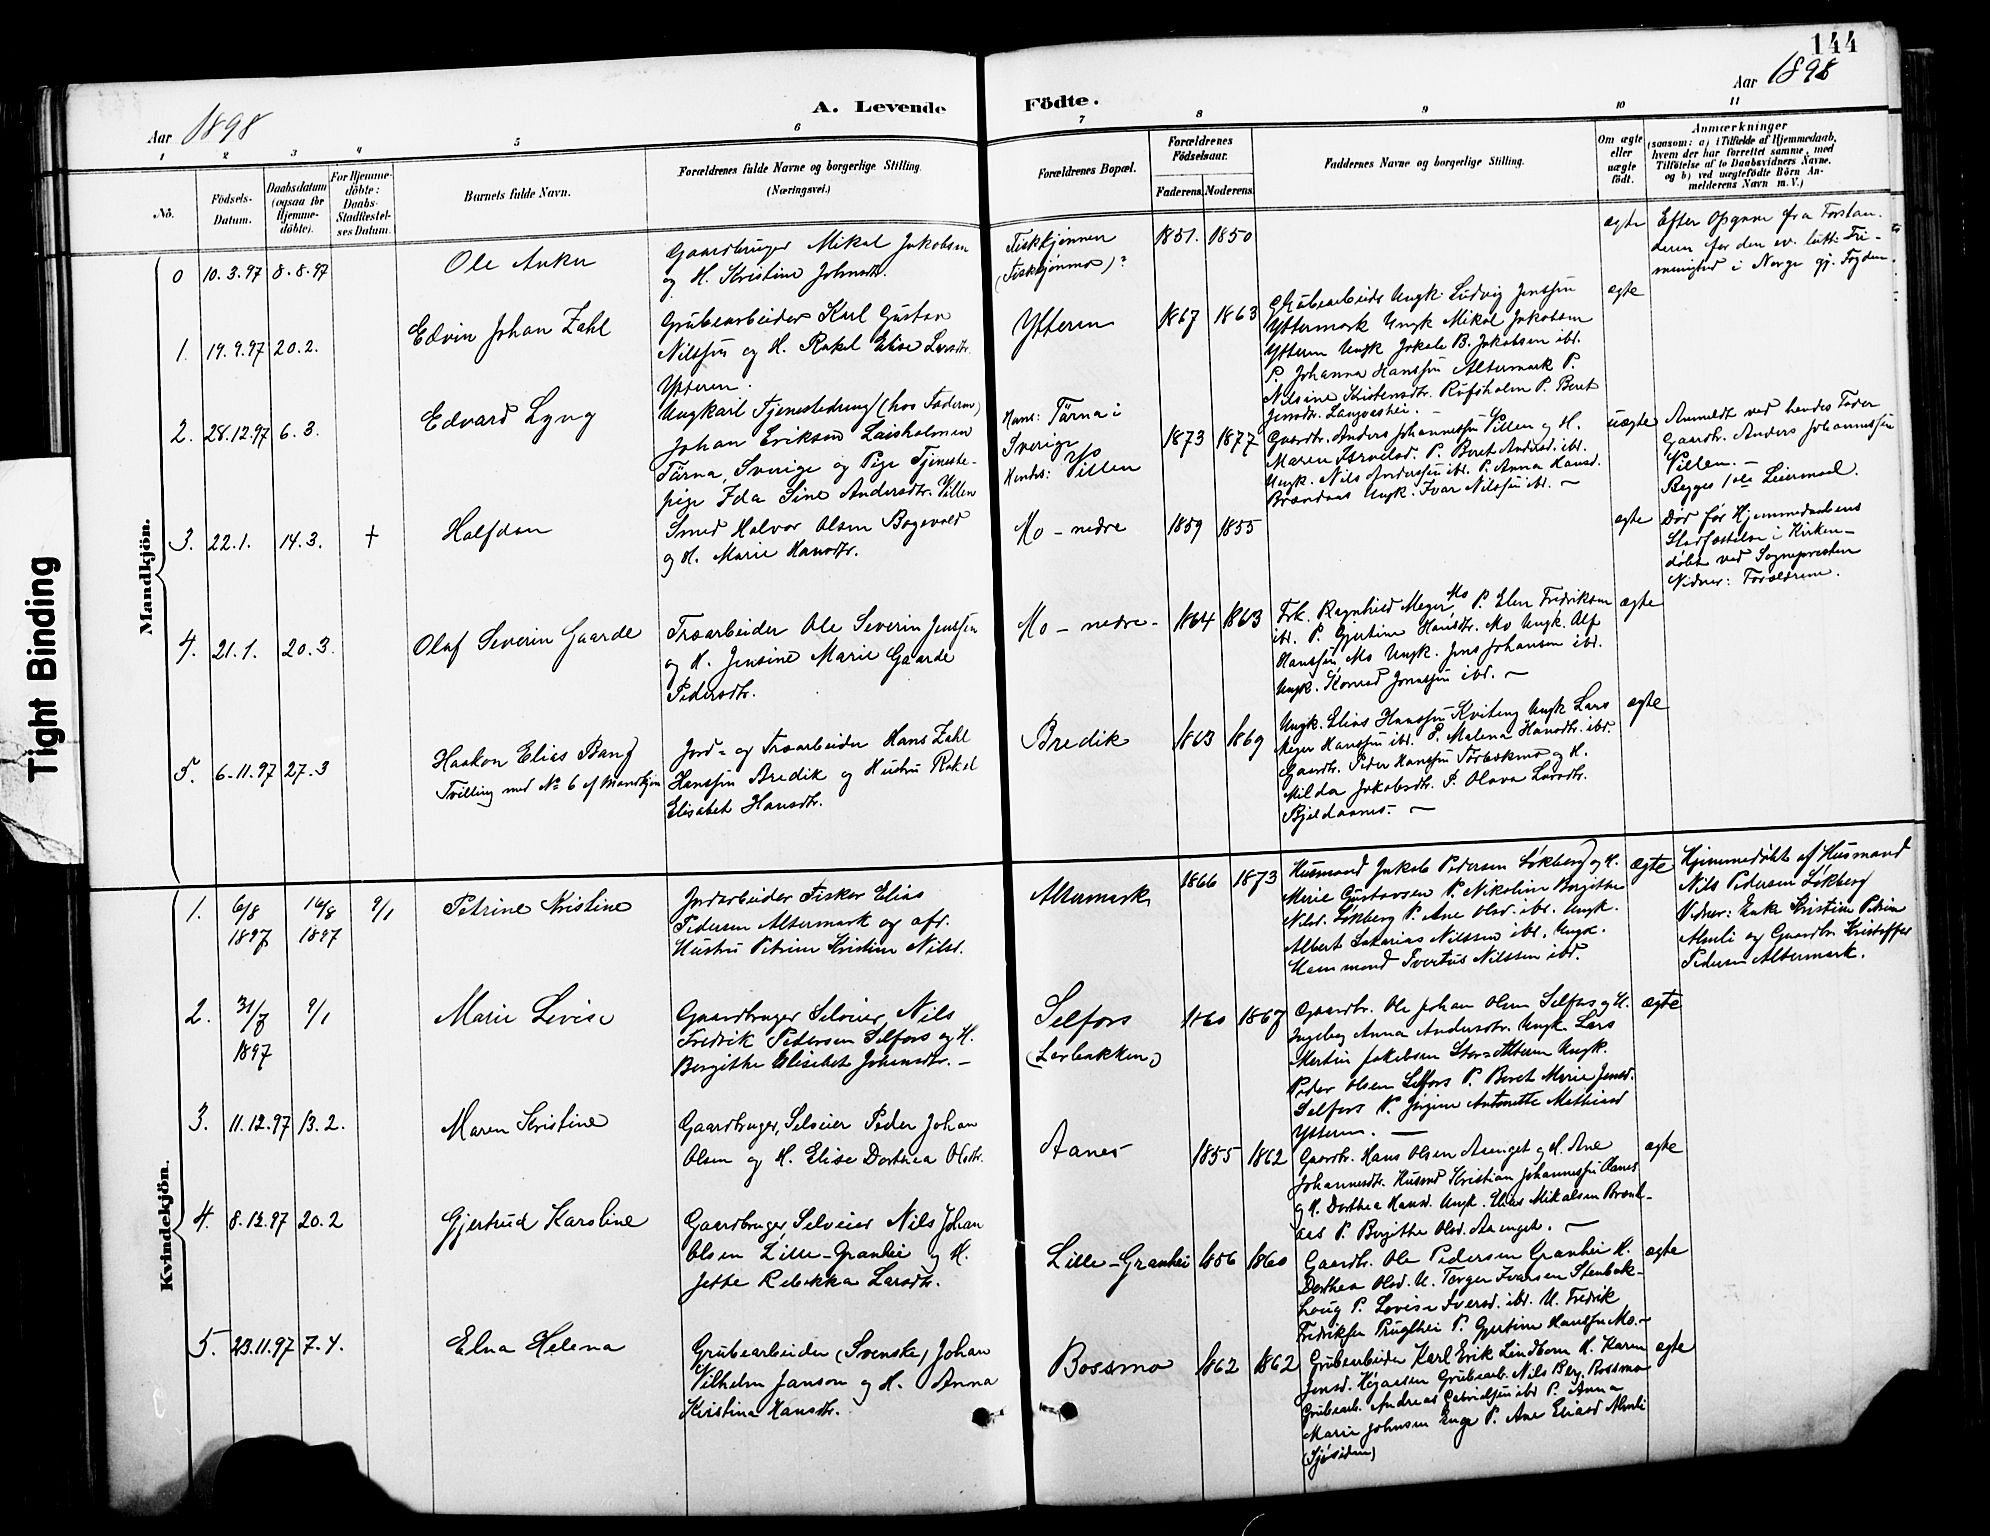 144
Aar 1898
A. Levende Födte.
Aar 1898
1 2 3 4 5 6 7 8 9 10 11
Nô.
Födsels-Datum.
Daabsdatum (ogsaa for Hjemme-döbte).
For Hjemme-döbte: Daabs-Stadfæstel-ses Datum.
Barnets fulde Navn.
Forældrenes fulde Navne og borgerlige Stilling.
(Næringsvei.)
Forældrenes Bopæl.
Forældrenes Födselsaar.
Faderens. Moderens.
Faddernes Navne og borgerlige Stilling.
Om ægte eller uægte födt.
Anmærkninger
(saasom: a) i Tilfælde af Hjemmedaab,
hvem der har forrettet samme, med
Tilföielse af to Daabsvidners Navne.
og b) ved uægtefödte Börn An-
melderens Navn m. V.)
Tight Binding
Mandkjön.
0 10.3.97 8.8.97
Ole Anku
Gaardbruger Mikal Jakobsen
og H. Kristine Johnsdtr.
Fiskkjønnen
(Fiskkjønmo)?
1851. 1850
ægte
Efter Opgave fra Forstan-
deren for den ev. luth. Fri-
menighed i Norge gj. Fogden.
1. 19.9.97 20.2.
Edvin Johan Zahl
Grubearbeider Karl Gustav
Nilssen og H. Rakel Elise Larsdtr.
Ytteren.
Ytteren
1867 1863
Grubearbeider Ungk. Ludvig Jenssen
Yttermark Ungk Mikal Jakobsen
Ytteren Ungk Jakob B. Jakobsen ibd.
P. Johanna Hanssen Altermark P.
Nilsine Kristensdtr. Røfsholm P. Beret
Jensdtr. Langveshei. –
ægte
2. 28.12.97 6.3.
Edvard Lyng
Ungkarl Tjenestedreng (hos Faderen)
Johan Eriksen Laisholmen
Tärna, Sverige og Pige Tjeneste-
pige Ida Sine Andersdtr. Villen
Hans: Tärna i
Sverige
Hendes: Villen
1873 1877
Gaardbr. Anders Johannessen Villen og H.
Maren P. Beret Andersd. ibd.
Ungk. Nils Anderssen ibd. P. Anna Hansd.
Brændaas Ungk. Ivar Nilssen ibd. –
uægte
Anmeldt ved hendes Fader
Gaardbr. Anders Johannessen
Villen. –
Begges 1ste Leiermaal.
3. 22.1. 14.3. +
Halfdan
Smed Halvor Olsen Bogevold
og H. Marie Hansdtr.
Mo – nedre
1859 1855
ægte
Død før Hjemmedaabens
Stadfæstelse i Kirken –
døbt ved Sognepresten
Vidner: Forældrene.
4. 21.1. 20.3.
Olaf Severin Gaarde
Træarbeider Ole Severin Jenssen
og H. Jensine Marie Gaarde
Pedersdtr.
Mo – nedre –
1864 1863
Frk. Ragnhild Meyer Mo P. Elen Fredriksen
ibd. P. Gjertine Hansdtr. Mo Ungk. Alf
Hanssen Mo Ungk. Jens Johansen ibd.
Ungk. Konrad Jonassen ibd. –
ægte
5. 6-11.97 27.3
Haakon Elias Bang
Tvilling med No 6 af Mandkjøn
Jord- og Træarbeider Hans Zahl
Hanssen Bredik og Hustru Rakel
Elisabet Hansdtr.
Bredik
1863 1869
Ungk. Elias Hanssen Kviteng Ungk Lars
Meyer Hanssen ibd. P. Malena Hansdtr. ibd.
Gaardbr. Peder Hanssen Forbakmo og H.
Milda Jakobsdtr. P. Olava Larsdtr.
Bjeldaanes. –
ægte
Kvindekjön.
1. 6/8 1897 16/8 1897 9/1
Petrine Kristine
Jordarbeider Fisker Elias
Pedersen Altermark og afd.
Hustru Petrine Kristine Nilsd.
Altermark
1866 1873
Husmand Jakob Pedersen Løkberg og H.
Merie Gustavsen P. Nikoline Bergitte
Nilsd. Løkberg P. Ane Olsd. ibd. Ungk.
Albert Sakarias Nilssen ibd. Ungk.
Hammond Svertus Nilssen ibd.
ægte
Hjemmedøbt af Husmand
Nils Pedersen Løkberg
Vidner: Enke Kristine Petrine
Almli og Gaardbr. Kristoffer
Pedersen Altermark.
2. 31/7 1897 9/1
Marie Levise
Gaardbruger Selveier Nils
Fredrik Pedersen Selfors og H.
Bergithe Elisebet Johansdtr. –
Selfors
(Lerbakken)
1860 1867
Gaardbr. Ole Johan Olsen Selfors og H.
Ingeborg Anna Andersdtr. Ungk. Lars
Martin Jakobsen Stor-Alteren Ungk.
Peder Olsen Selfors P. Beret Marie Jensd.
Selfors P. Jørgine Antonette Mathiasd
Ytteren. –
ægte
3. 11.12.97 13.2.
Maren Kristine
Gaardbruger, Selveier Peder Johan
Olsen og H. Elise Dorthea Olsdtr.
Aanes
1855 1862
Gaardbr. Hans Olsen Aaenget og H. Ane
Johannesdtr. Husmd Kristian Johannessen Aanes
og H. Dorthea Hansd. Ungk. Elias Mikalsen Brænd-
aas P. Bergithe Olsd. Aaenget. –
ægte
4. 8.12.97 20.2
Gjertrud Karoline
Gaardbruger Selveier Nils Johan
Olsen Lille-Granhei og H.
Jette Rebekka Larsdtr.
Lille-Granhei
1856 1860
Gaardbr. Ole Pedersen Granhei H.
Dorthea Olsd. U. Torger Ivarsen Stenbæk-
houg P. Lovise Iversd. ibd. U. Fredrik
Fredriksen Pruglhei P. Gjertine Hanssen Mo. –
ægte
5. 23.11.97 7.4.
Elna Helena
Grubearbeider (Svenske) Johan
Vilhelm Janson og H. Anna
Kristina Hansdtr.
Bossmo
1862 1862
Grubearbeider Karl Erik Lindbom H. Karen
Jensd. Høgaasen Grubearb. Nils Berg Bossmo
Grubearb. Andreas Gabrielsen ibd P. Anna
Marie Johnsen Enge P. Ane Eliasd Almli
(Sjøsiden)
ægte